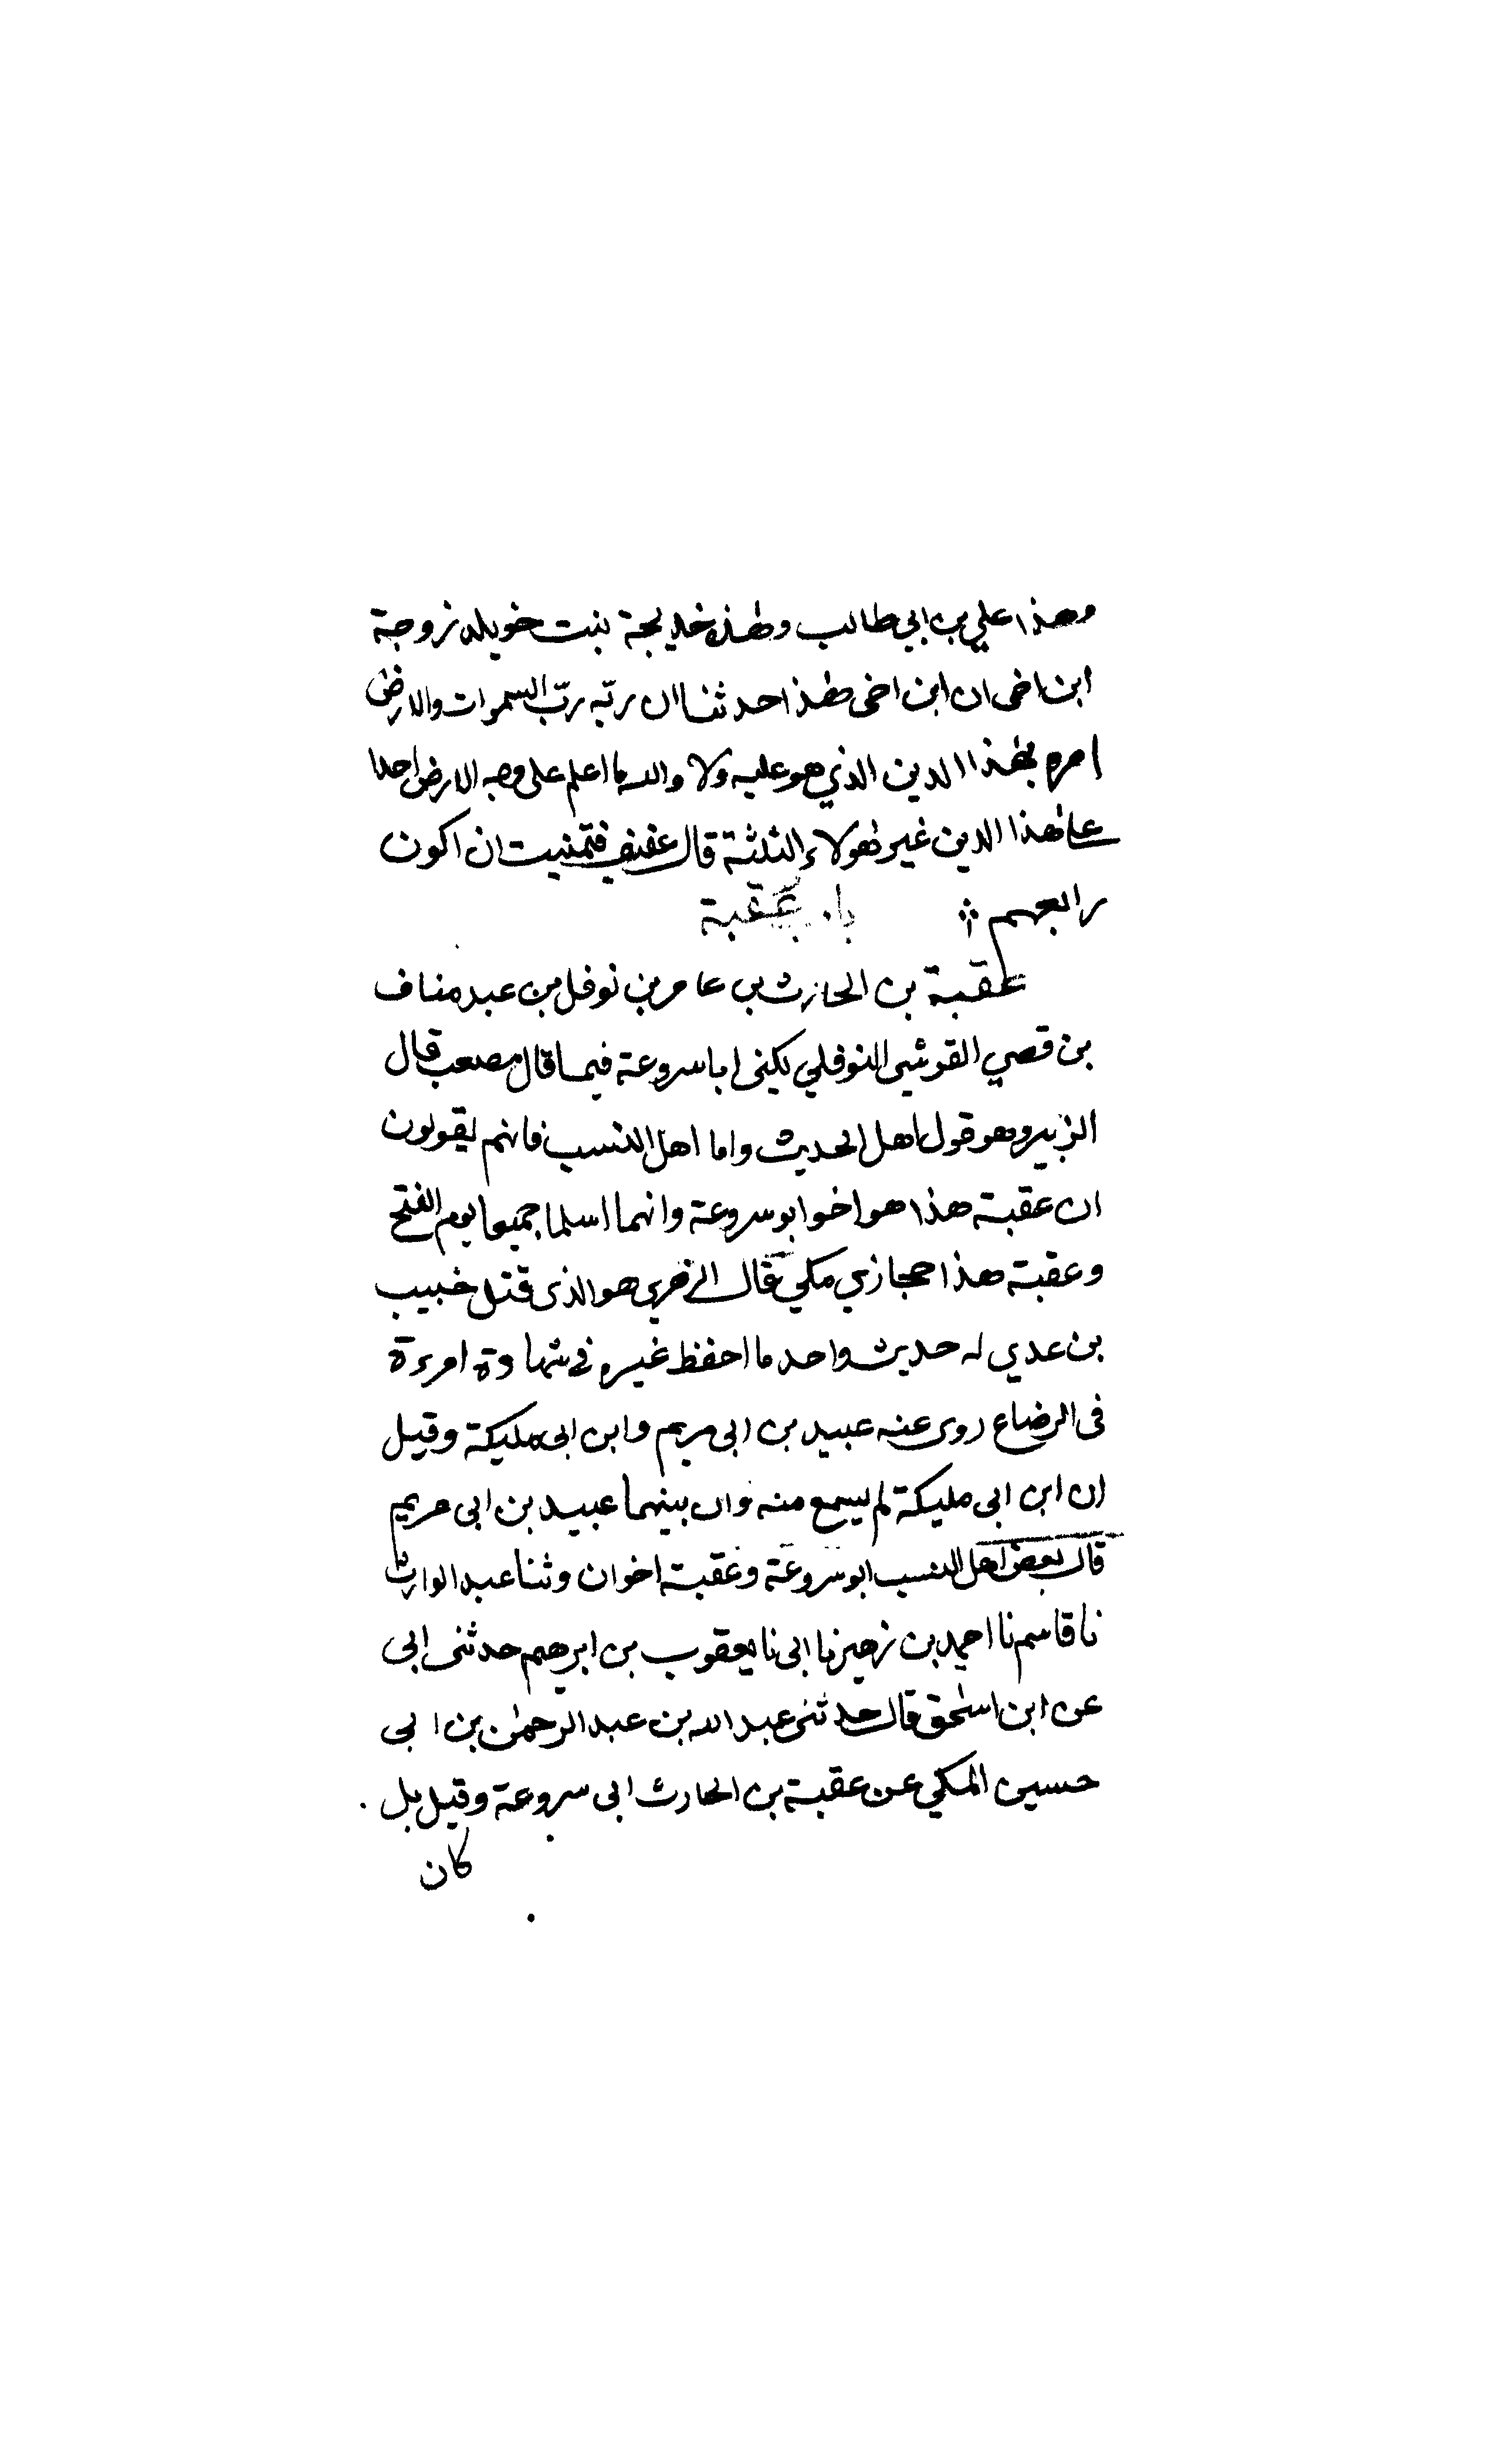 وهذا علي بن ابي طالب وهذه خديجة بنت خويلد زوجة
ابن اخى ان ابن اخى هذا حدثنا ان ربّه ربّ السموات والارض
امره بهذا الدين الذي هو عليه ولا والله ما اعلم على وجه الارض احدا
على هذا الدين غير هولاء الثلثة قال عفيف فتمنيت ان اكون
رابعهم
باب عقبة
عقبة بن الحارث بن عامر بن نوفل بن عبد مناف
بن قصي القرشي النوفلي يكنى ابا سروعة فيما قال مصعب قال
الزبير وهو قول اهل الحديث واما اهل النسب فانهم يقولون
ان عقبة هذا هو اخو ابو سروعة وانهما اسلما جميعا يوم الفتح
وعقبة هذا حجازي مكي قال الزهري هو الذى قتل خبيب
بن عدي له حديث واحد ما احفظ غيره في شهادة امرءة
فى الرضاع روى عنه عبيد بن ابى مريم وابن ابى مليكة وقيل
ان ابن ابى مليكة لم يسمع منه وان بينهما عبيد بن ابى مريم
قال بعض اهل النسب ابو سروعة وعقبة اخوان وثنا عبد الوارث
نا قاسم نا احمد بن زهير نا ابى نا يعقوب بن ابرهيم حدثنى ابى
عن ابن اسحق قال حدثنى عبد الله بن عبد الرحمن بن ابى
حسين المكي عن عقبة بن الحارث ابى سروعة وقيل بل
كان